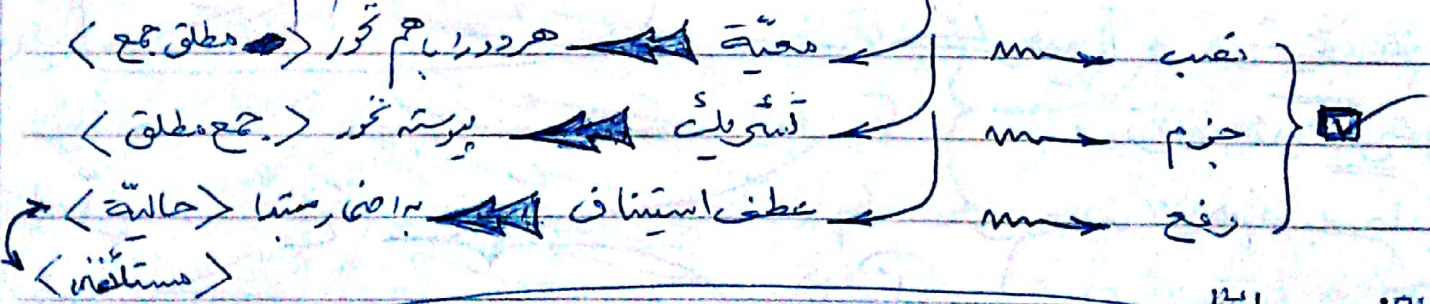 نصب معیّة هر دو را با هم نخور ⟨مطلق جمع⟩
جزم تشریك پیوسته نخور ⟨جمع مطلق⟩
رفع عطف استیناف به اضمار مبتدا ⟨حالیّة⟩
⟨مستأنفه⟩